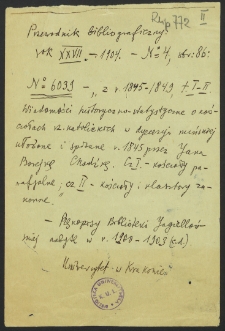 Rkp 772 II
Przewodnik Bibliograficzny.
rok XXVII. – r. 1904. – No 4, str. 86:
No 6039, z r. 1845–1849, t. I–II.
Wiadomości historyczno-statystyczne o koś-
ciołach rz. katolickich w dyecezyi mińskiej
ułożone i spisane r. 1845 przez Jana
Borejkę Chodźkę. Cz. I. – kościoły pa-
rafjalne; cz. II – kościoły i klasztory za-
konne."
– Rękopisy Biblioteki Jagielloń-
skiej nabyte w r. 1900–1903
Uniwersytet w Krakowie